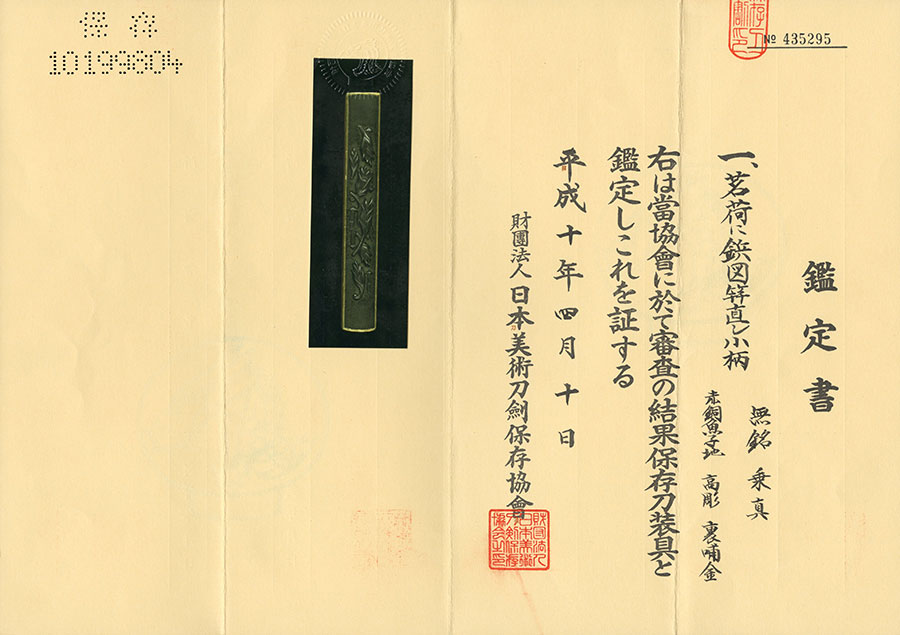 保存
10199804
№ 435295
鑑定書
一、茗荷に鋲図笄直し小柄
無銘 乗真
赤銅魚子地 高彫 裏哺金
右は當協會に於て審査の結果保存刀装具と
鑑定しこれを証する
平成十年四月十日
財團法人日本美術刀劍保存協會